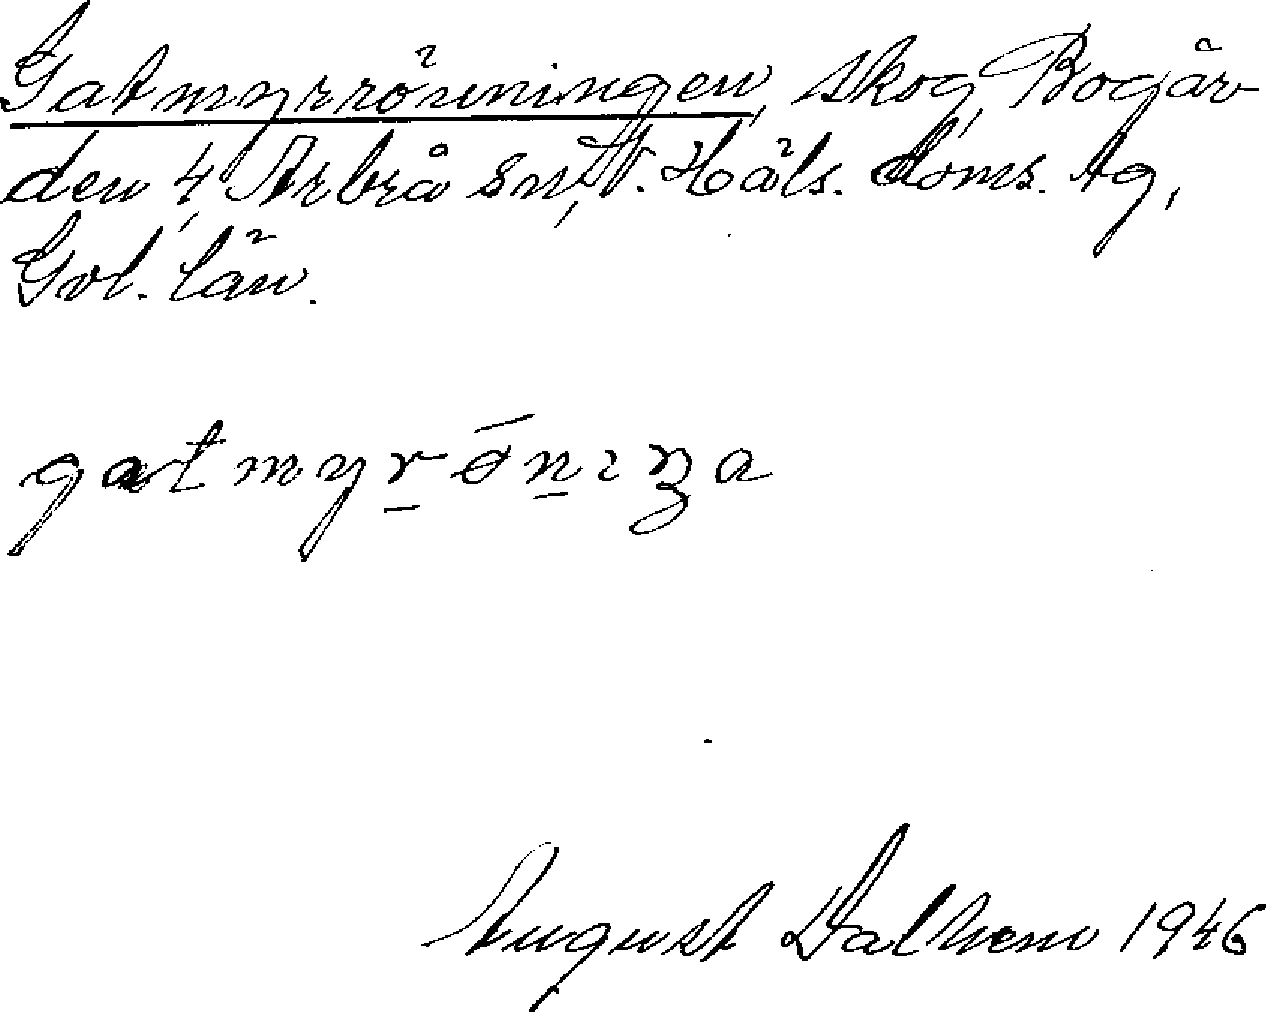 Gatmyrrönningen, skog, Bogår-
den 4, Arbrå sn, N. Häls. doms. tg,
Gvl. län.
gatmyrǿnıŋa
August Dalhem 1946